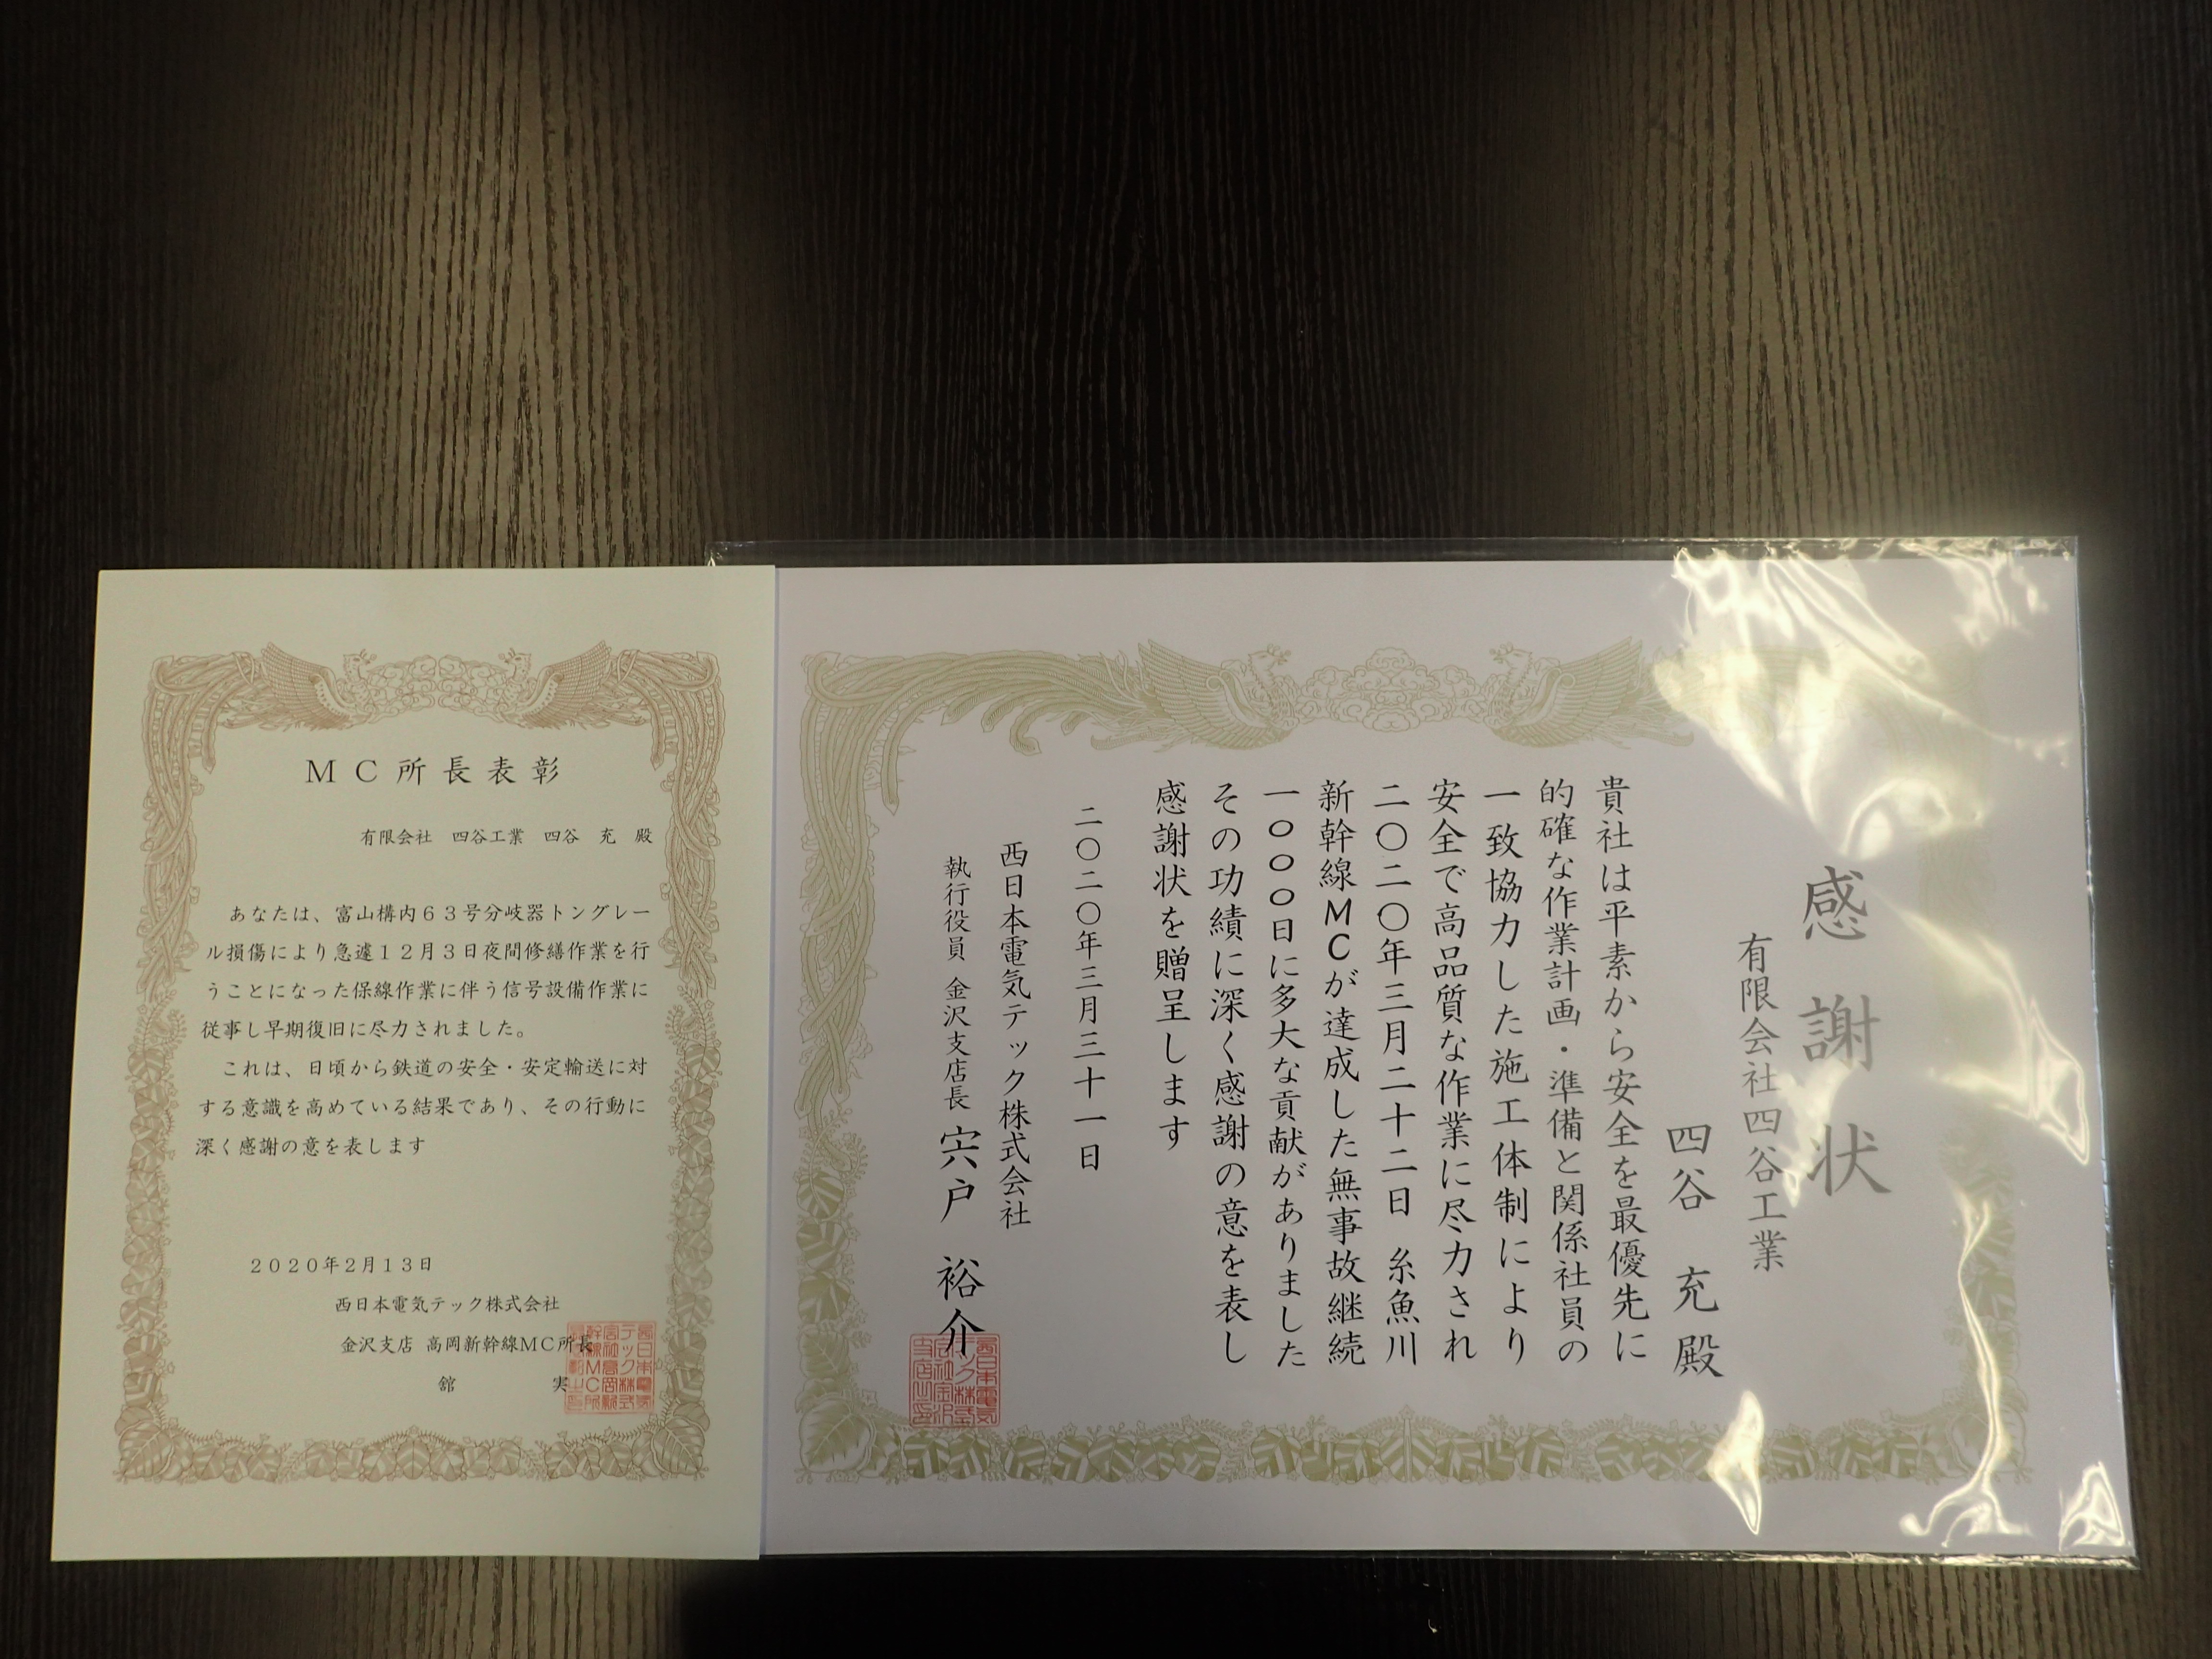 MC所長表彰
有限会社　四谷工業　四谷　充　殿
あなたは、富山構内63号分岐器トングレー
ル損傷により急遽12月3日夜間修繕作業を行
うことになった保線作業に伴う信号設備作業に
従事し早期復旧に尽力されました。
これは、日頃から鉄道の安全・安定輸送に対
する意識を高めている結果であり、その行動に
深く感謝の意を表します
2020年2月13日
西日本電気テック株式会社
金沢支店　高岡新幹線MC所長
舘　実
感謝状
有限会社四谷工業
四谷　充　殿
貴社は平素から安全を最優先に
的確な作業計画・準備と関係社員の
一致協力した施工体制により
安全で高品質な作業に尽力され
二〇二〇年三月二十二日　糸魚川
新幹線MCが達成した無事故継続
一〇〇〇日に多大な貢献がありました
その功績に深く感謝の意を表し
感謝状を贈呈します
二〇二〇年三月三十一日
西日本電気テック株式会社
執行役員　金沢支店長　宍戸　裕介